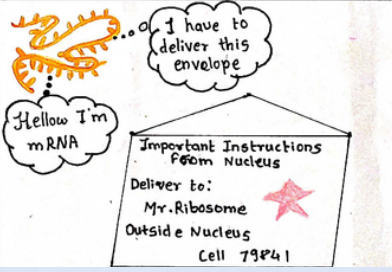 I have to
deliver this
envelope
Hellow I'm
mRNA
Important Instructions
From Nucleus
Deliver to:
Mr. Ribosome
Outside Nucleus
Cell 79841